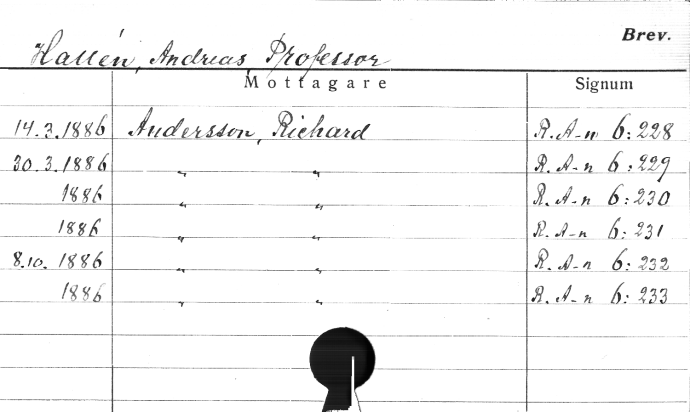 Brev.
Hallén, Andreas, Professor
Mottagare Signum
14.3.1886 Andersson, Richard R. A-n 6:228
30.3.1886 " " R. A-n 6:229
1886 " " R. A-n 6:230
1886 " " R. A-n 6:231
8.10.1886 " " R. A-n 6:232
1886 " " R. A-n 6:233